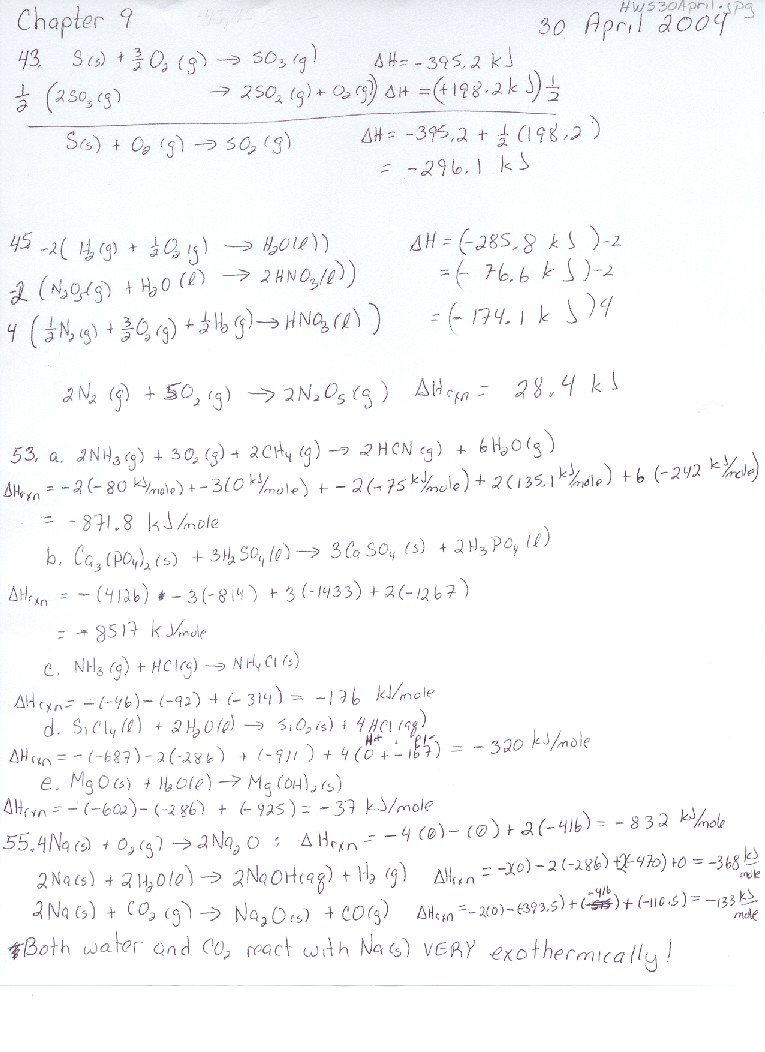 HWS30April.jpg
Chapter 9 30 April 2009
43. S(s) + 3/2 O₂ (g) → SO₃(g) ΔH = -395.2 kJ
1/2 (2SO₃(g) → 2SO₂(g) + O₂(g)) ΔH = (+198.2 kJ) 1/2
S(s) + O₂ (g) → SO₂ (g) ΔH = -395.2 + 1/2 (198.2)
= -296.1 kJ
45 -2( H₂(g) + 1/2 O₂(g) → H₂O(l)) ΔH = (-285.8 kJ)-2
-2 (N₂O₅(g) + H₂O(l) → 2HNO₃(l)) = (- 76.6 kJ)-2
4 (1/2 N₂(g) + 3/2 O₂(g) + 1/2 H₂(g) → HNO₃(l)) = (-174.1 kJ)4
2N₂ (g) + 5O₂ (g) → 2N₂O₅(g) ΔHrxn = 28.4 kJ
53. a. 2NH₃(g) + 3O₂(g) + 2CH₄(g) → 2HCN(g) + 6H₂O(g)
ΔHrxn = -2(-80 kJ/mole) + -3(0 kJ/mole) + -2(-75 kJ/mole) + 2(135.1 kJ/mole) + 6(-242 kJ/mole)
= -871.8 kJ/mole
b. Ca₃(PO₄)₂(s) + 3H₂SO₄(l) → 3CaSO₄(s) + 2H₃PO₄(l)
ΔHrxn = -(4126) - 3(-814) + 3(-1433) + 2(-1267)
= -8517 kJ/mole
c. NH₃(g) + HCl(g) → NH₄Cl(s)
ΔHrxn = -(-46) - (-92) + (-314) = -176 kJ/mole
d. SiCl₄(l) + 2H₂O(l) → SiO₂(s) + 4HCl(aq)
H+ Cl-
ΔHrxn = -(-687) - 2(-286) + (-911) + 4(0 + -167) = -320 kJ/mole
e. MgO(s) + H₂O(l) → Mg(OH)₂(s)
ΔHrxn = -(-602) - (-286) + (-925) = -37 kJ/mole
55. 4Na(s) + O₂(g) → 2Na₂O : ΔHrxn = -4(0) - (0) + 2(-416) = -832 kJ/mole
2Na(s) + 2H₂O(l) → 2NaOH(aq) + H₂(g) ΔHrxn = -2(0) - 2(-286) + 2(-470) + 0 = -368 kJ/mole
2Na(s) + CO₂(g) → Na₂O(s) + CO(g) ΔHrxn = -2(0) - (-393.5) + (-416) + (-110.5) = -133 kJ/mole
*Both water and CO₂ react with Na(s) VERY exothermically!